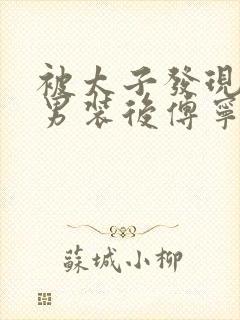 被太子發現
男裝後傅寧
蘇城小柳